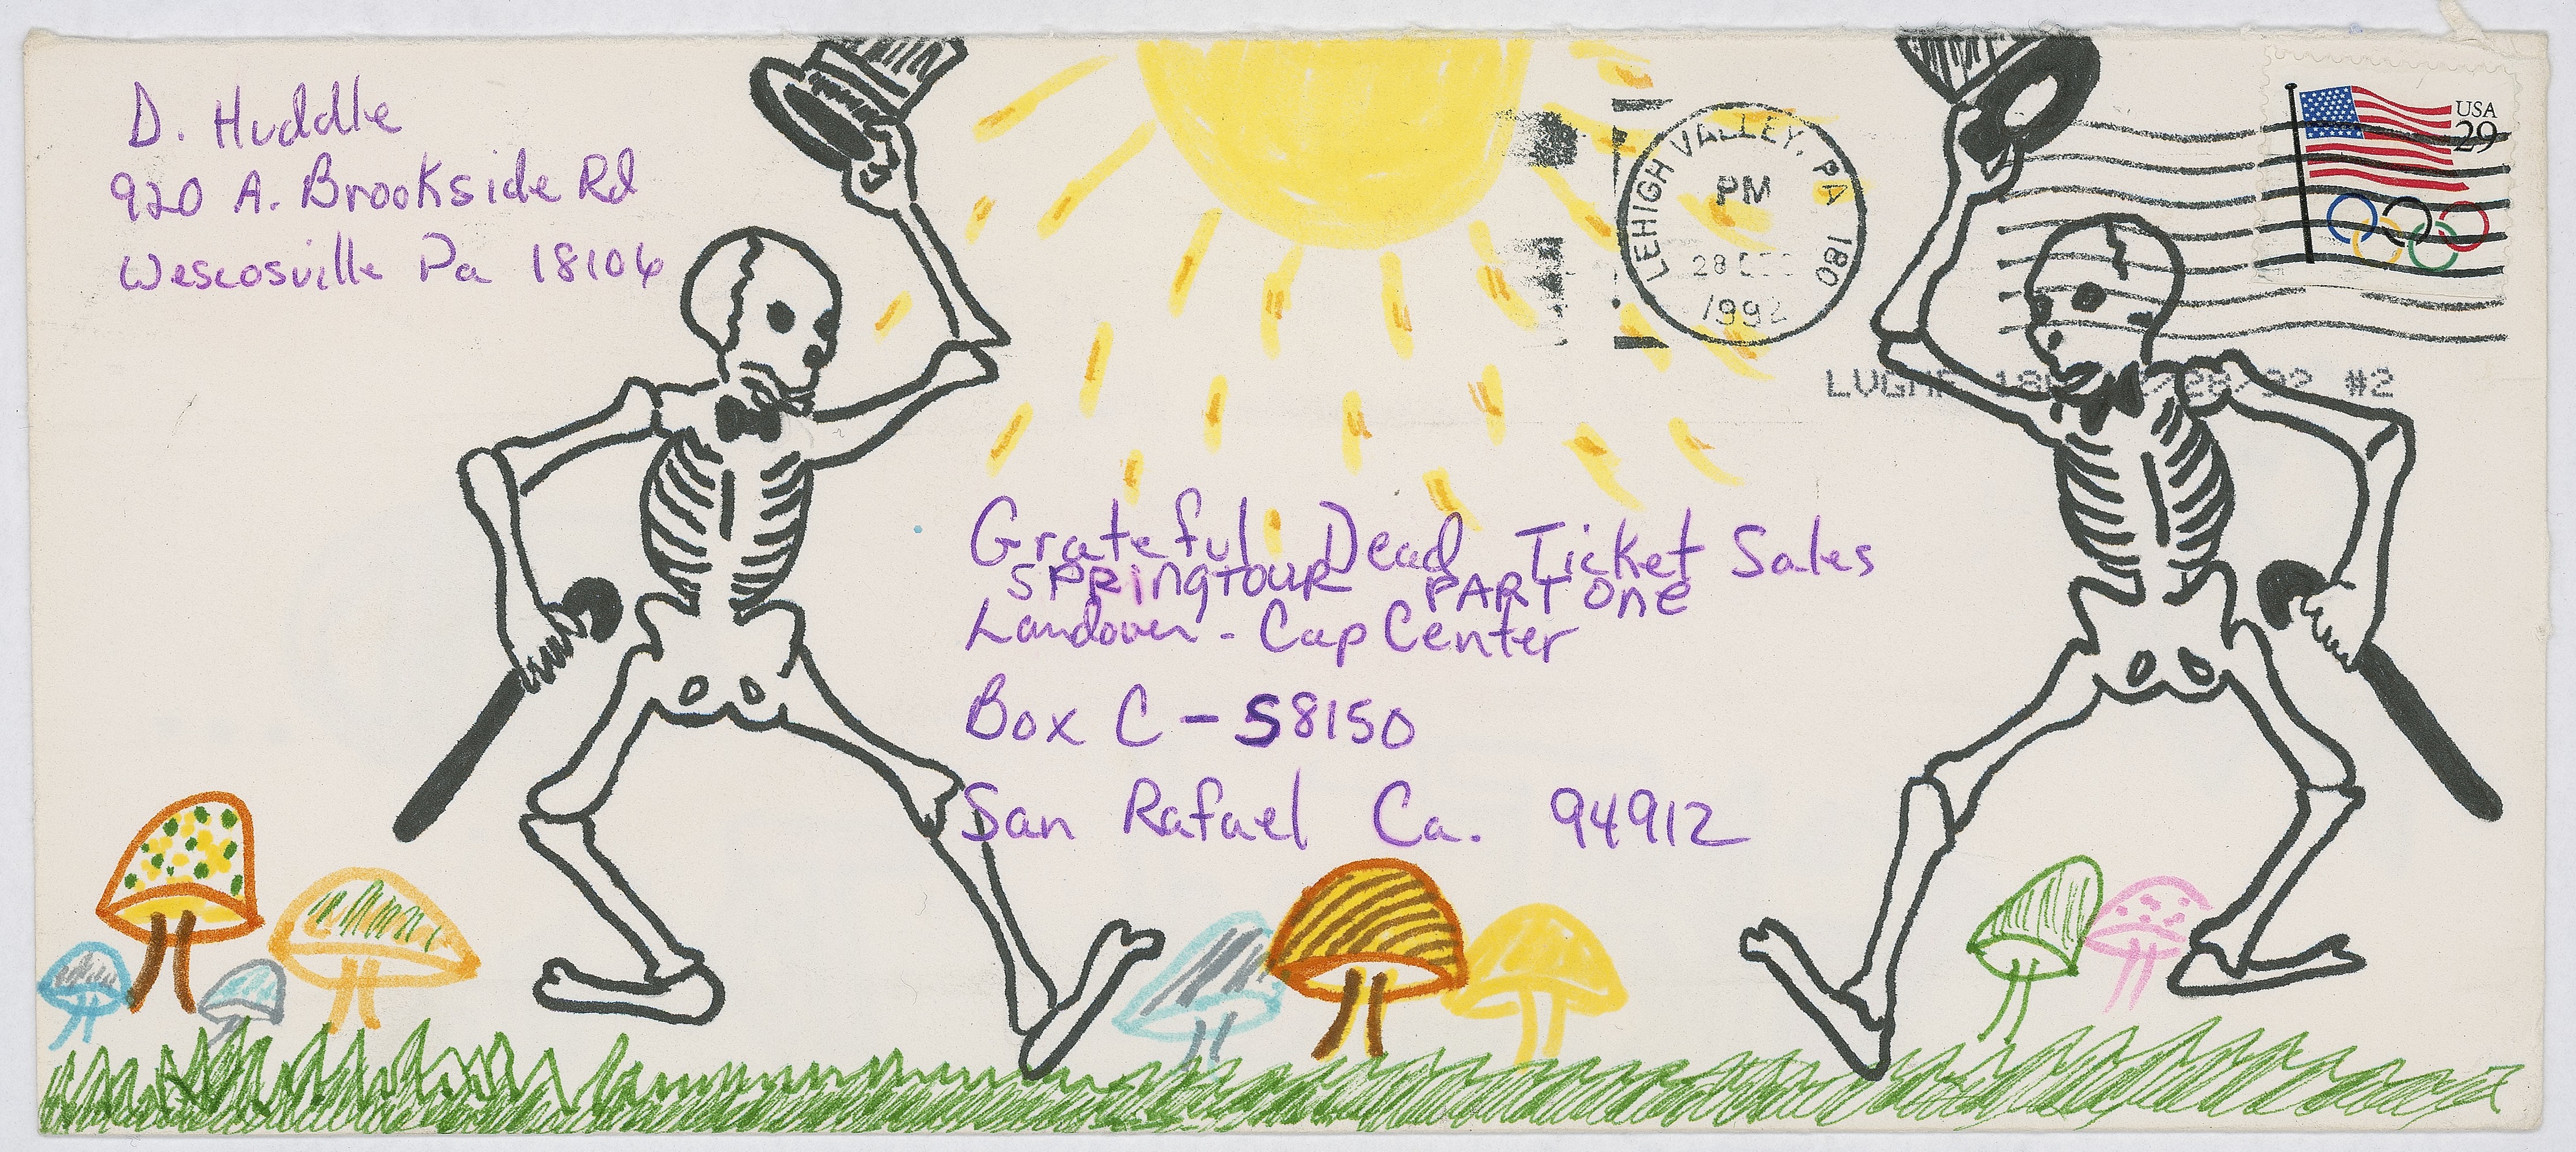 D. Huddle
920 A. Brookside Rd
Wescosville Pa 18106
LEHIGH VALLEY, PA 180
PM
28 DEC
1992
USA
29
LVGMF 180 12/28/92 #2
Grateful Dead Ticket Sales
SPRingTOUR PART One
Landover - Cap Center
Box C - 58150
San Rafael Ca. 94912